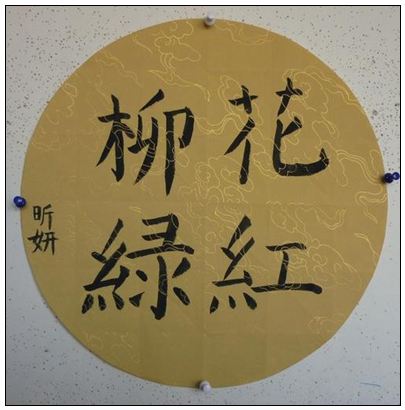 花紅
柳綠
昕妍